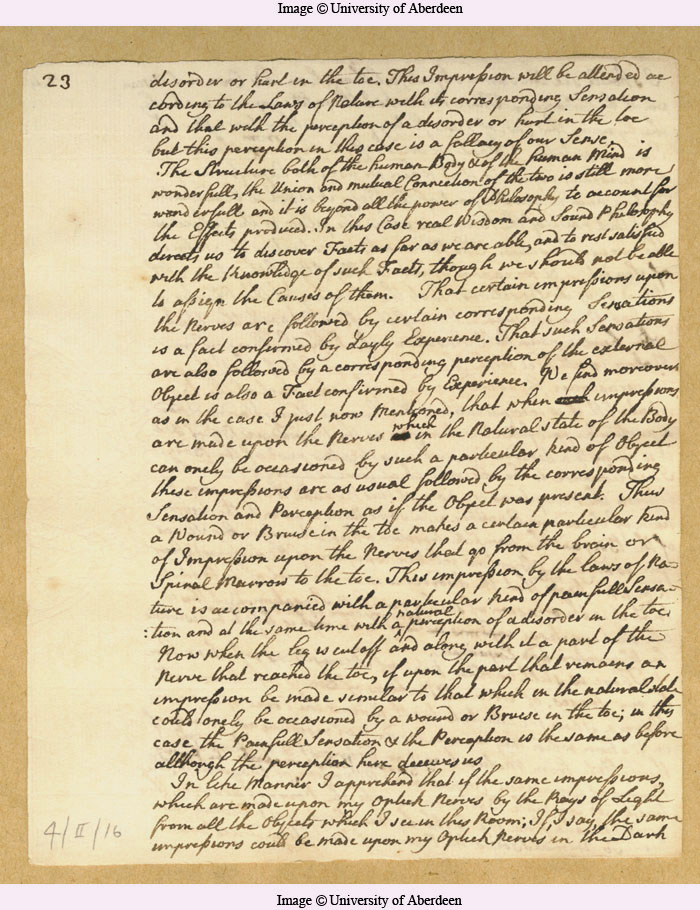 Image © University of Aberdeen
23
disorder or hurt in the toe. This Impression will be attended ac
cording to the Laws of Nature with its corresponding Sensation
and that with the perception of a disorder or hurt in the toe
but this perception in this case is a fallacy of our Sense.
The Structure both of the human Body & of the human Mind is
wonderfull, the Union and mutual Connection of the two is still more
wonderfull and it is beyond all the power of Philosophy to account for
the Effects produced. In this Case real Wisdom and Sound Philosophy
directs us to discover Facts as far as we are able, and to rest satisfied
with the Knowledge of such Facts, though we should not be able
to assign the Causes of them. That certain impressions upon
the Nerves are followed by certain corresponding Sensations
is a fact confirmed by dayly Experience. That such Sensations
are also followed by a corresponding perception of the external
Object is also a Fact confirmed by Experience. We find moreover
as in the case I just now Mentioned, that when impressions
are made upon the Nerves which in the Natural state of the Body
can onely be occasioned by such a particular kind of Object
these impressions are as usual followed by the corresponding
Sensation and Perception as if the Object was present. Thus
a Wound or Bruise in the toe makes a certain particular kind
of Impression upon the Nerves that go from the brain or
Spinal Marrow to the toe. This impression by the laws of Na-
ture is accompanied with a particular kind of painfull Sensa-
:tion and at the same time with a natural perception of a disorder in the toe.
Now when the leg is cut off and along with it a part of the
Nerve that reached the toe, if upon the part that remains an
impression be made similar to that which in the natural state
could onely be occasioned by a wound or Bruise in the toe; in this
case the Painfull Sensation & the Perception is the same as before
although the perception here deceives us
In like Manner I apprehend that if the same impressions,
which are made upon my Optick Nerves by the Rays of Light
from all the Objects which I see in this Room; If, I say, the same
impressions could be made upon my Optick Nerves in the Dark
4/II/16
Image © University of Aberdeen